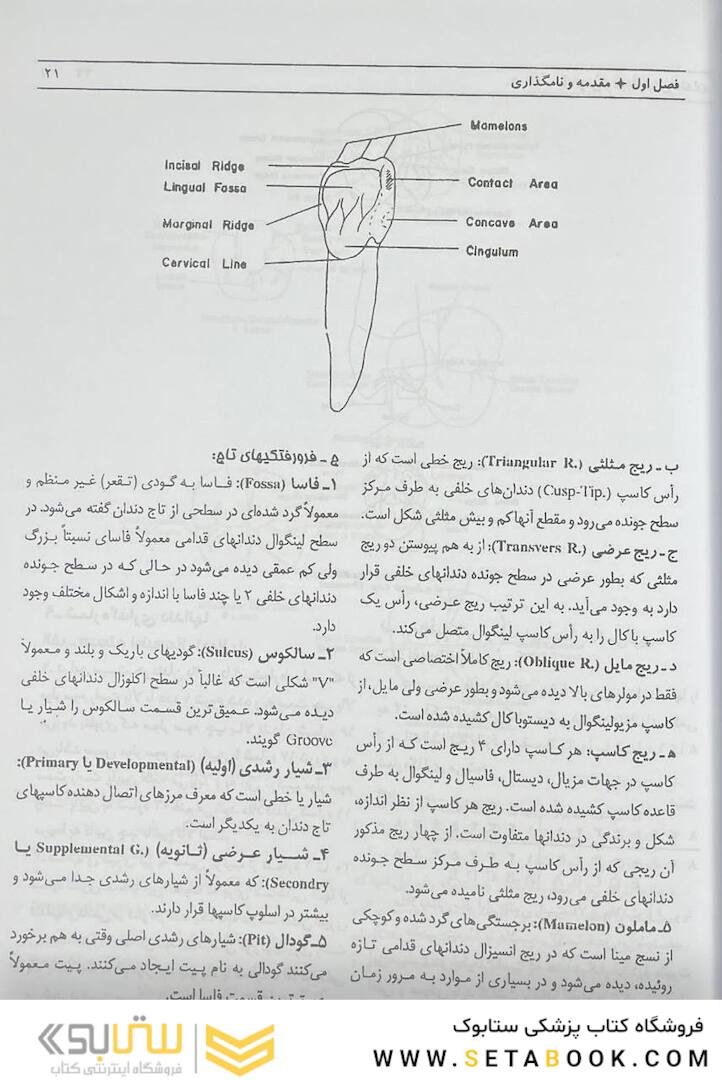 فصل اول ✦ مقدمه و نامگذاری
۲۱
Mamelons
Incisal Ridge
Lingual Fossa
Contact Area
Marginal Ridge
Concave Area
Cingulum
Cervical Line
ب ـ ریج مثلثی (Triangular R.): ریج خطی است که از
رأس کاسپ (Cusp-Tip.) دندان‌های خلفی به طرف مرکز
سطح جونده می‌رود و مقطع آنها کم و بیش مثلثی شکل است.
ج ـ ریج عرضی (Transvers R.): از به هم پیوستن دو ریج
مثلثی که بطور عرضی در سطح جونده دندانهای خلفی قرار
دارد به وجود می‌آید. به این ترتیب ریج عرضی، رأس یک
کاسپ باکال را به رأس کاسپ لینگوال متصل می‌کند.
د ـ ریج مایل (Oblique R.): ریج کاملاً اختصاصی است که
فقط در مولرهای بالا دیده می‌شود و بطور عرضی ولی مایل، از
کاسپ مزیولینگوال به دیستوباکال کشیده شده است.
ه ـ ریج کاسپ: هر کاسپ دارای ۴ ریج است که از رأس
کاسپ در جهات مزیال، دیستال، فاسیال و لینگوال به طرف
قاعده کاسپ کشیده شده است. ریج هر کاسپ از نظر اندازه،
شکل و برندگی در دندانها متفاوت است. از چهار ریج مذکور
آن ریجی که از رأس کاسپ به طرف مرکز سطح جونده
دندانهای خلفی می‌رود، ریج مثلثی نامیده می‌شود.
۵ـ ماملون (Mamelon): برجستگی‌های گرد شده و کوچکی
از نسج مینا است که در ریج انسیزال دندانهای قدامی تازه
روئیده، دیده می‌شود و در بسیاری از موارد به مرور زمان
ج ـ فرورفتگیهای تاج:
۱ـ فاسا (Fossa): فاسا به گودی (تقعر) غیر منظم و
معمولاً گرد شده‌ای در سطحی از تاج دندان گفته می‌شود. در
سطح لینگوال دندانهای قدامی معمولاً فاسای نسبتاً بزرگ
ولی کم عمقی دیده می‌شود در حالی که در سطح جونده
دندانهای خلفی ۲ یا چند فاسا با اندازه و اشکال مختلف وجود
دارد.
۲ـ سالکوس (Sulcus): گودیهای باریک و بلند و معمولاً
"V" شکلی است که غالباً در سطح اکلوزال دندانهای خلفی
دیده می‌شود. عمیق‌ترین قسمت سالکوس را شیار یا
Groove گویند.
۳ـ شیار رشدی (اولیه) (Developmental یا Primary):
شیار یا خطی است که معرف مرزهای اتصال دهنده کاسپهای
تاج دندان به یکدیگر است.
۴ـ شیار عرضی (ثانویه) (Supplemental G. یا
Secondry): که معمولاً از شیارهای رشدی جدا می‌شود و
بیشتر در اسلوپ کاسپها قرار دارند.
۵ـ گودال (Pit): شیارهای رشدی اصلی وقتی به هم برخورد
می‌کنند گودالی به نام پیت ایجاد می‌کنند. پیت معمولاً
قسمت فاسا است.
فروشگاه کتاب پزشکی ستابوک
WWW.SETABOOK.COM
ستابوک
فروشگاه اینترنتی کتاب